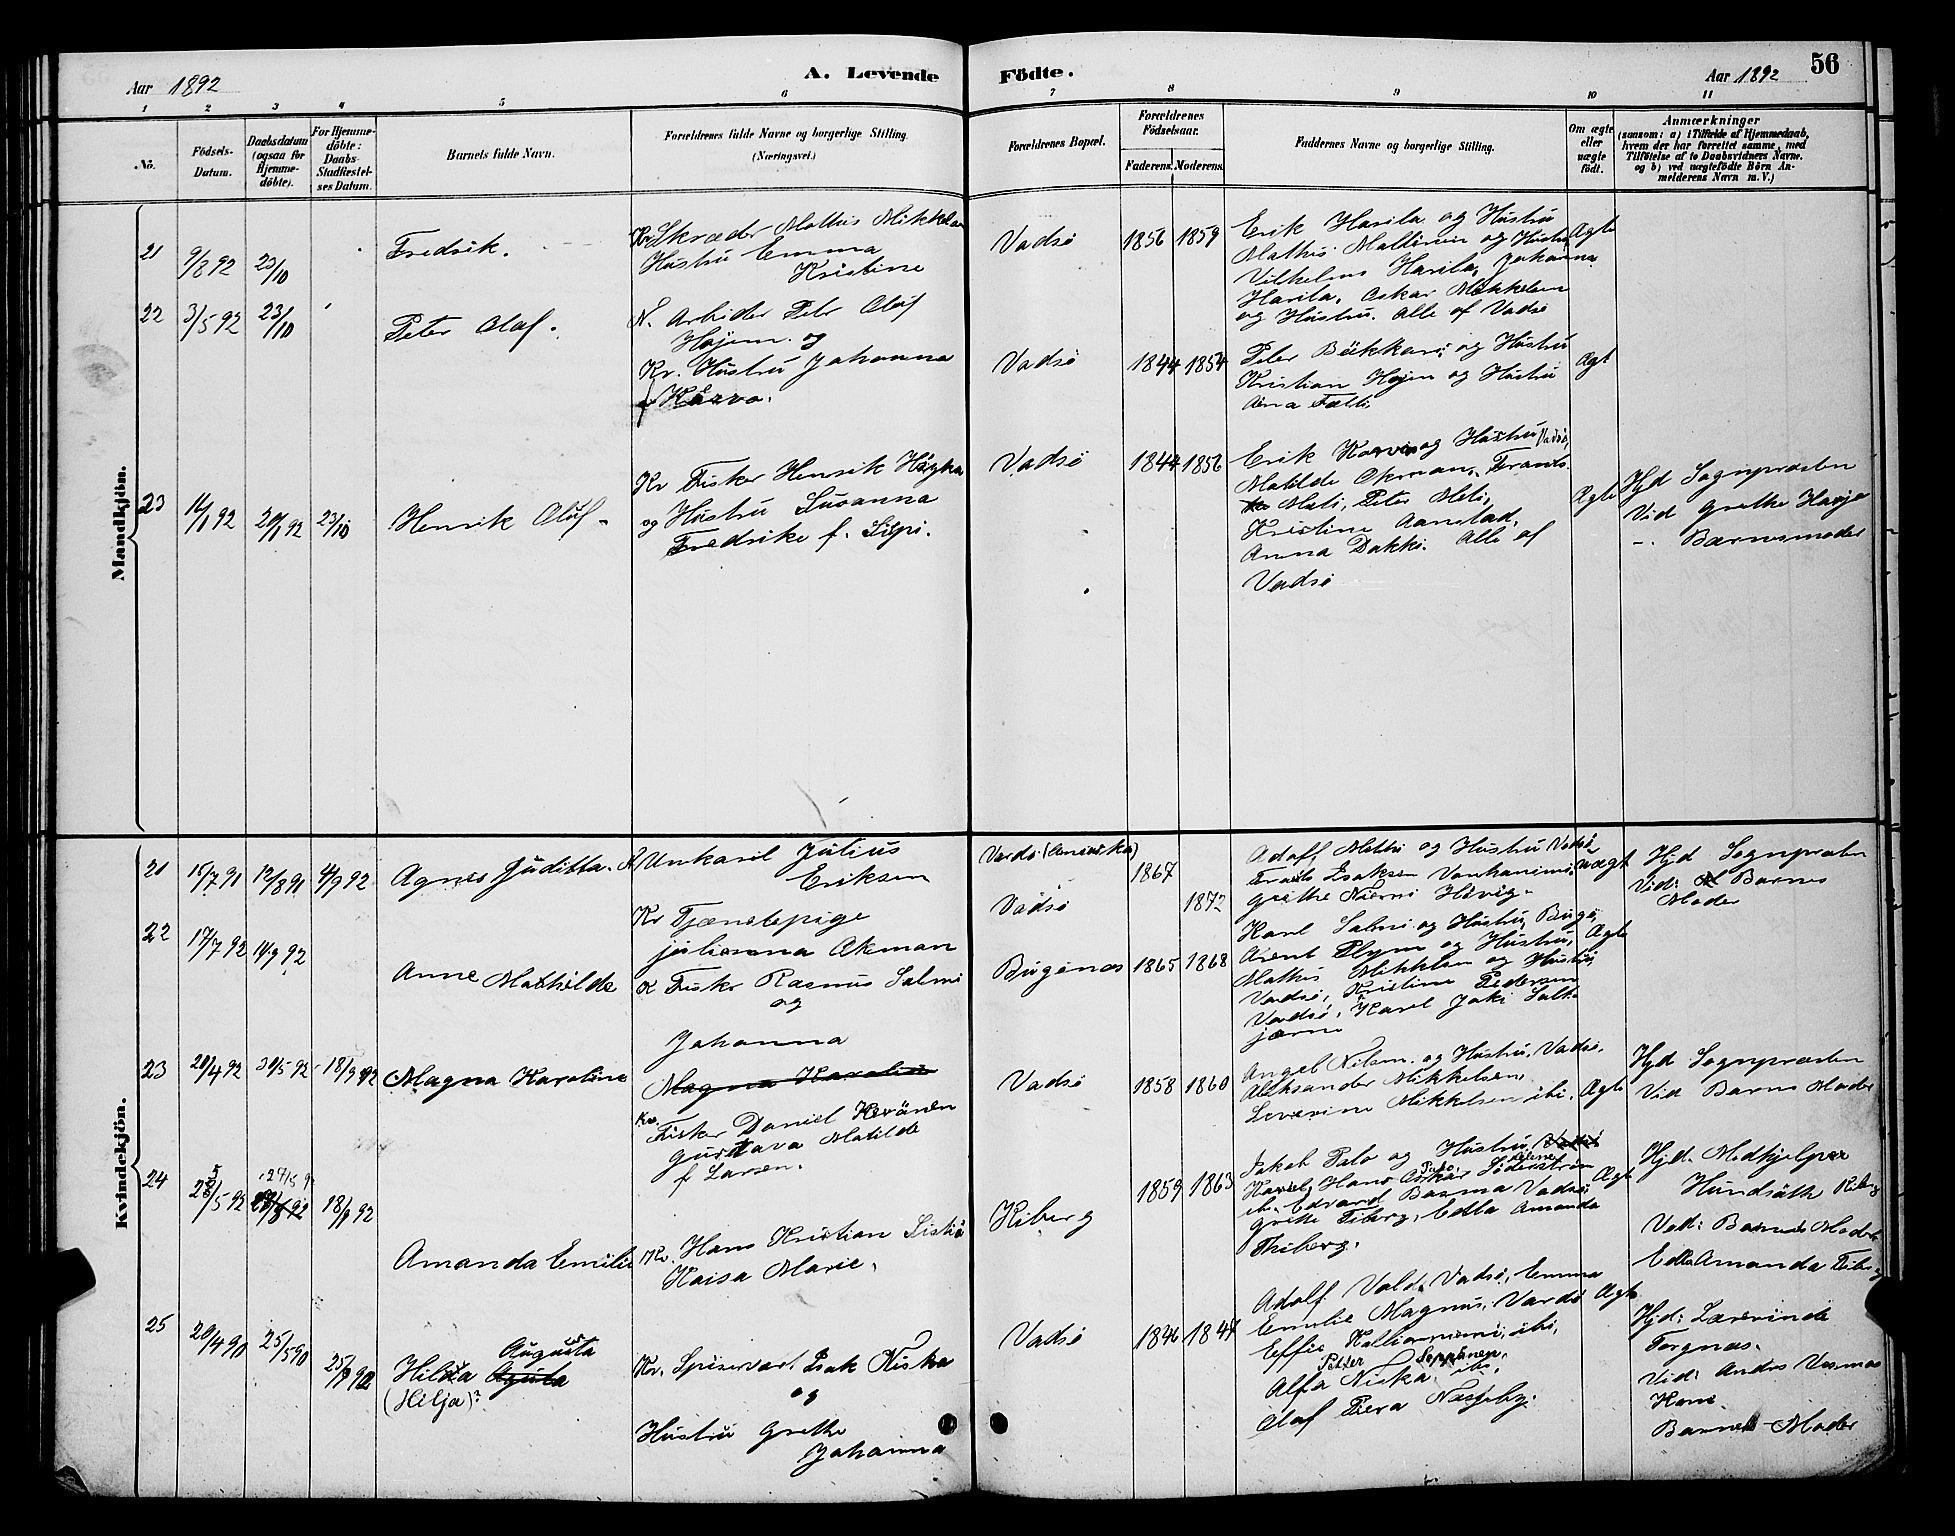 56
Aar 1892
A. Levende
Födte.
Aar 1892
1 2 3 4 5 6 7 8 9 10 11
No.
Födsels-
Datum.
Daabsdatum
(ogsaa for
Hjemme-
döbte).
For Hjemme-
döbte:
Daabs-
Stadfæstel-
ses Datum.
Barnets fulde Navn.
Forældrenes fulde Navne og borgerlige Stilling.
(Næringsvei.)
Forældrenes Bopæl.
Forældrenes
Födselsaar.
Faderens. Moderens.
Faddernes Navne og borgerlige Stilling.
Om ægte
eller
uægte
födt.
Anmærkninger
(saasom: a) i Tilfælde af Hjemmedaab,
hvem der har forrettet samme, med
Tilföielse af to Daabsvidners Navne.
og b) ved uægtefödte Börn An-
melderens Navn m. V.)
Mandkjön.
21
9/8 92
23/10
Fredrik.
Kv Skræder Mathis Mikkelsen
Hustru Emma
Kristine
Vadsö
1856 1859
Erik Harila og Hustru
Mathis Mallinen og Hustru
Vilhelms Harila, Johanna
Harila, Oskar Mikkelsen
og Hustru. Alle af Vadsö
Ægte
22
3/5 92
23/10
Peter Olaf.
N. Arbeider Petr Oluf
Höjem og
Kv. Hustru Johanna
f Karvo.
Vadsö
1844 1854
Peter Bäkkari og Hustru
Kristian Höjem og Hustru
Ægt
23
14/1 92
20/1 92
23/10
Henrik Oluf
Kv Fisker Henrik
og Hustru Susanna
Fredrike f. Sipi.
Vadsö
1844 1856
Erik og Hustru Vadsö,
Matilde Frants
Mati, Peter Mati,
Kristine Aanstad,
Anna Dakki. Alle af
Vadsö
Ægte
Hjd Sognpræsten
Vid Grethe
-. Barnsmoder
Kvindekjön.
21
15/7 91
12/8 91
4/9 92
Agnes Juditta.
N Unkarl Julius
Eriksen
Kv Tjenestepige
Johanna Akman
Vardö (Amerika)
Vadsö
1867
1872
Adolf Mathi og Hustru Vadsö,
Isaksen
Grethe
uægt
Hjd Sognpræsten
Vid: Barnets
Moder
22
17/7 92
14/9 92
Anne Mathilde
K Fisker Rasmus Salmi
og
Johanna
Bugönæs
1865 1868
Karl Salmi og Hustru, Bugö,
Arent og Hustru,
Mathis Mikkelsen og Hustru,
Vadsö, Kristine Pedersen
Vadsö, Karel
Ægte
23
20/4 92
30/5 92
18/9 92
Magna Karoline
Magna Karoline
Kv. Fisker Daniel Keränen
Gustava Matilde
f Larsen.
Vadsö
1858 1860
Angel Nilsen og Hustru, Vadsö.
Aleksander Mikkelsen,
Severine Mikkelsen ibi.
Ægte
Hjd Sognpræsten
Vid Barns Moder
24
/5 92
27/5 9
18/9 92
Amanda Emilie
Kv. Hans Kristian
Kaisa Marie,
Kiberg
1859 1863
Jakob Palo og Hustru,
Hans Oskar Söderström
Edvard Basma Vadsö,
Grethe Tiberg, Edla Amanda
Thiberg.
Ægt
Hjd. Medhjelper
Kiberg
Vid: Barnets Moder
Edla Amanda Tiberg
25
20/4 90
25/5 90
25/9 92
Hilda Augusta
(Hilja)?
Kv. Spisevært Isak Niska
og
Hustru Grethe
Johanna
Vadsö
1846 1847
Adolf Valde Vadsö, Emma
Emilie Magnus, Vardö
Effie ibi,
Petter Seppänen,
Alfa Niska ibi,
Olaf Piera Næsseby.
Ægte
Hjd: Lærerinde
Torgnæs.
Vid: Anders
Barnets Moder